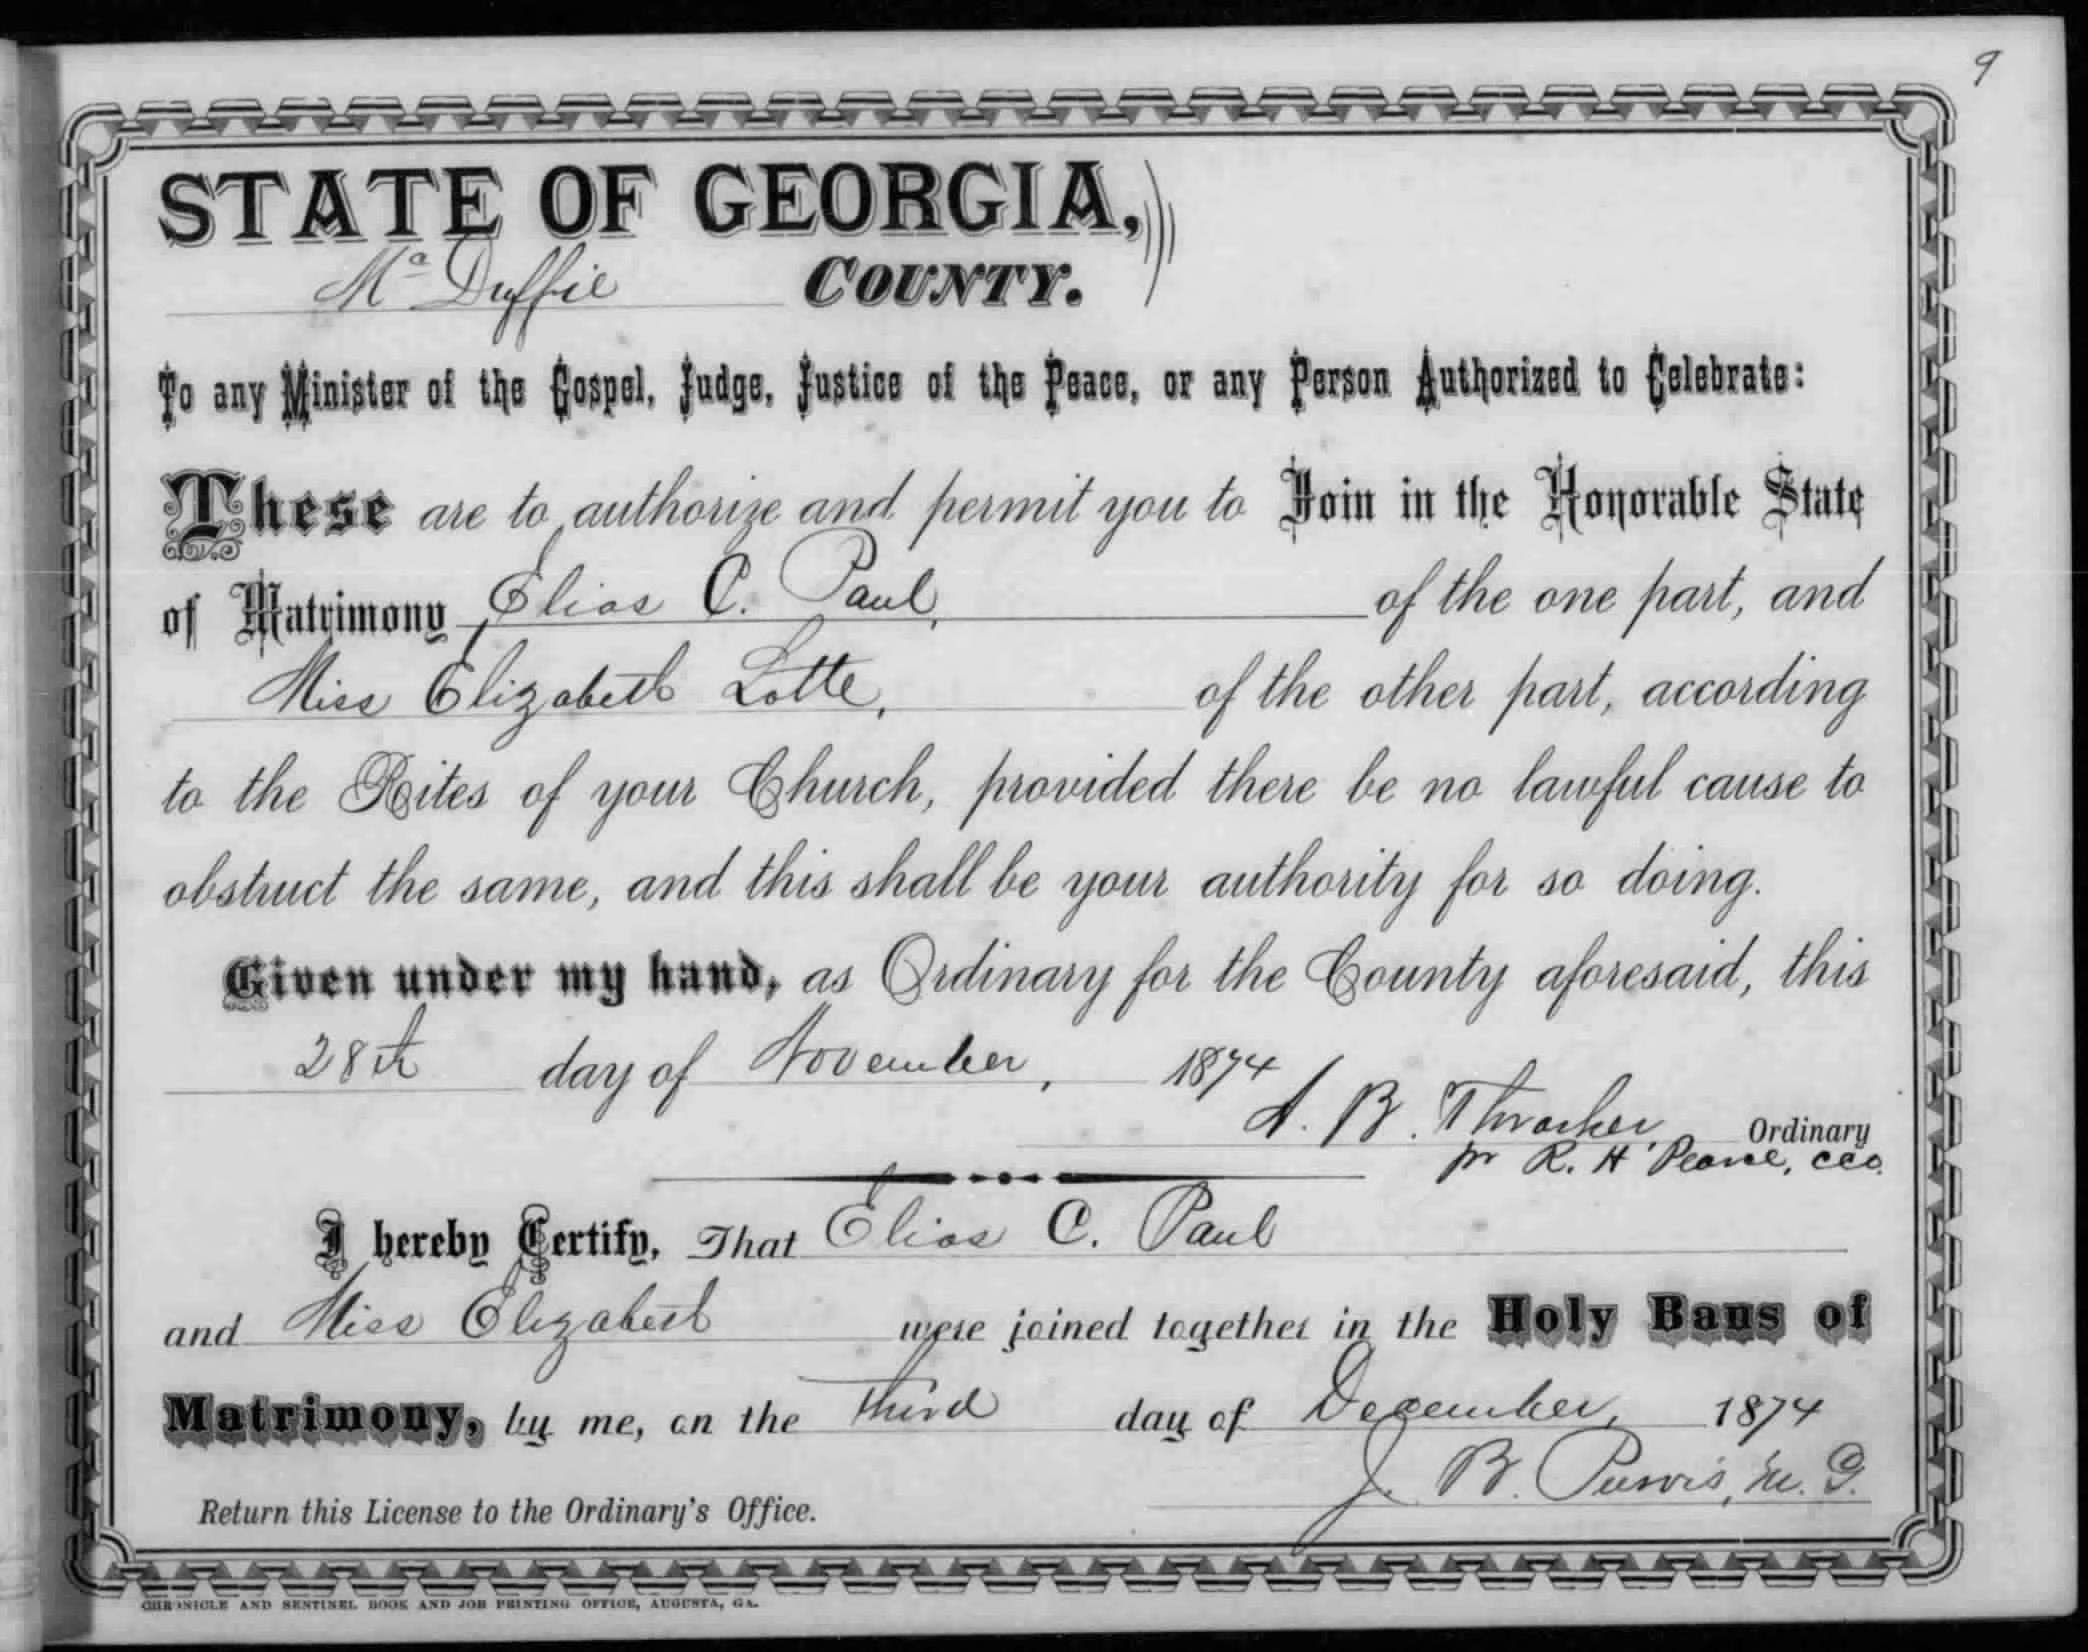 9
STATE OF GEORGIA,
Mc Duffie COUNTY.
To any Minister of the Gospel, Judge, Justice of the Peace, or any Person Authorized to Celebrate:
These are to authorize and permit you to Join in the Honorable State
of Matrimony Elias C. Paul, of the one part, and
Miss Elizabeth Lotte, of the other part, according
to the Rites of your Church, provided there be no lawful cause to
obstruct the same, and this shall be your authority for so doing.
Given under my hand, as Ordinary for the County aforesaid, this
28th day of November, 1874
A. B. Thrasher, Ordinary
pr R. H. Pearce, CCO.
I hereby Certify, That Elias C. Paul
and Miss Elizabeth were joined together in the Holy Bans of
Matrimony, by me, on the Third day of December, 1874
J. B. Purvis, M. G.
Return this License to the Ordinary's Office.
CHRONICLE AND SENTINEL BOOK AND JOB PRINTING OFFICE, AUGUSTA, GA.